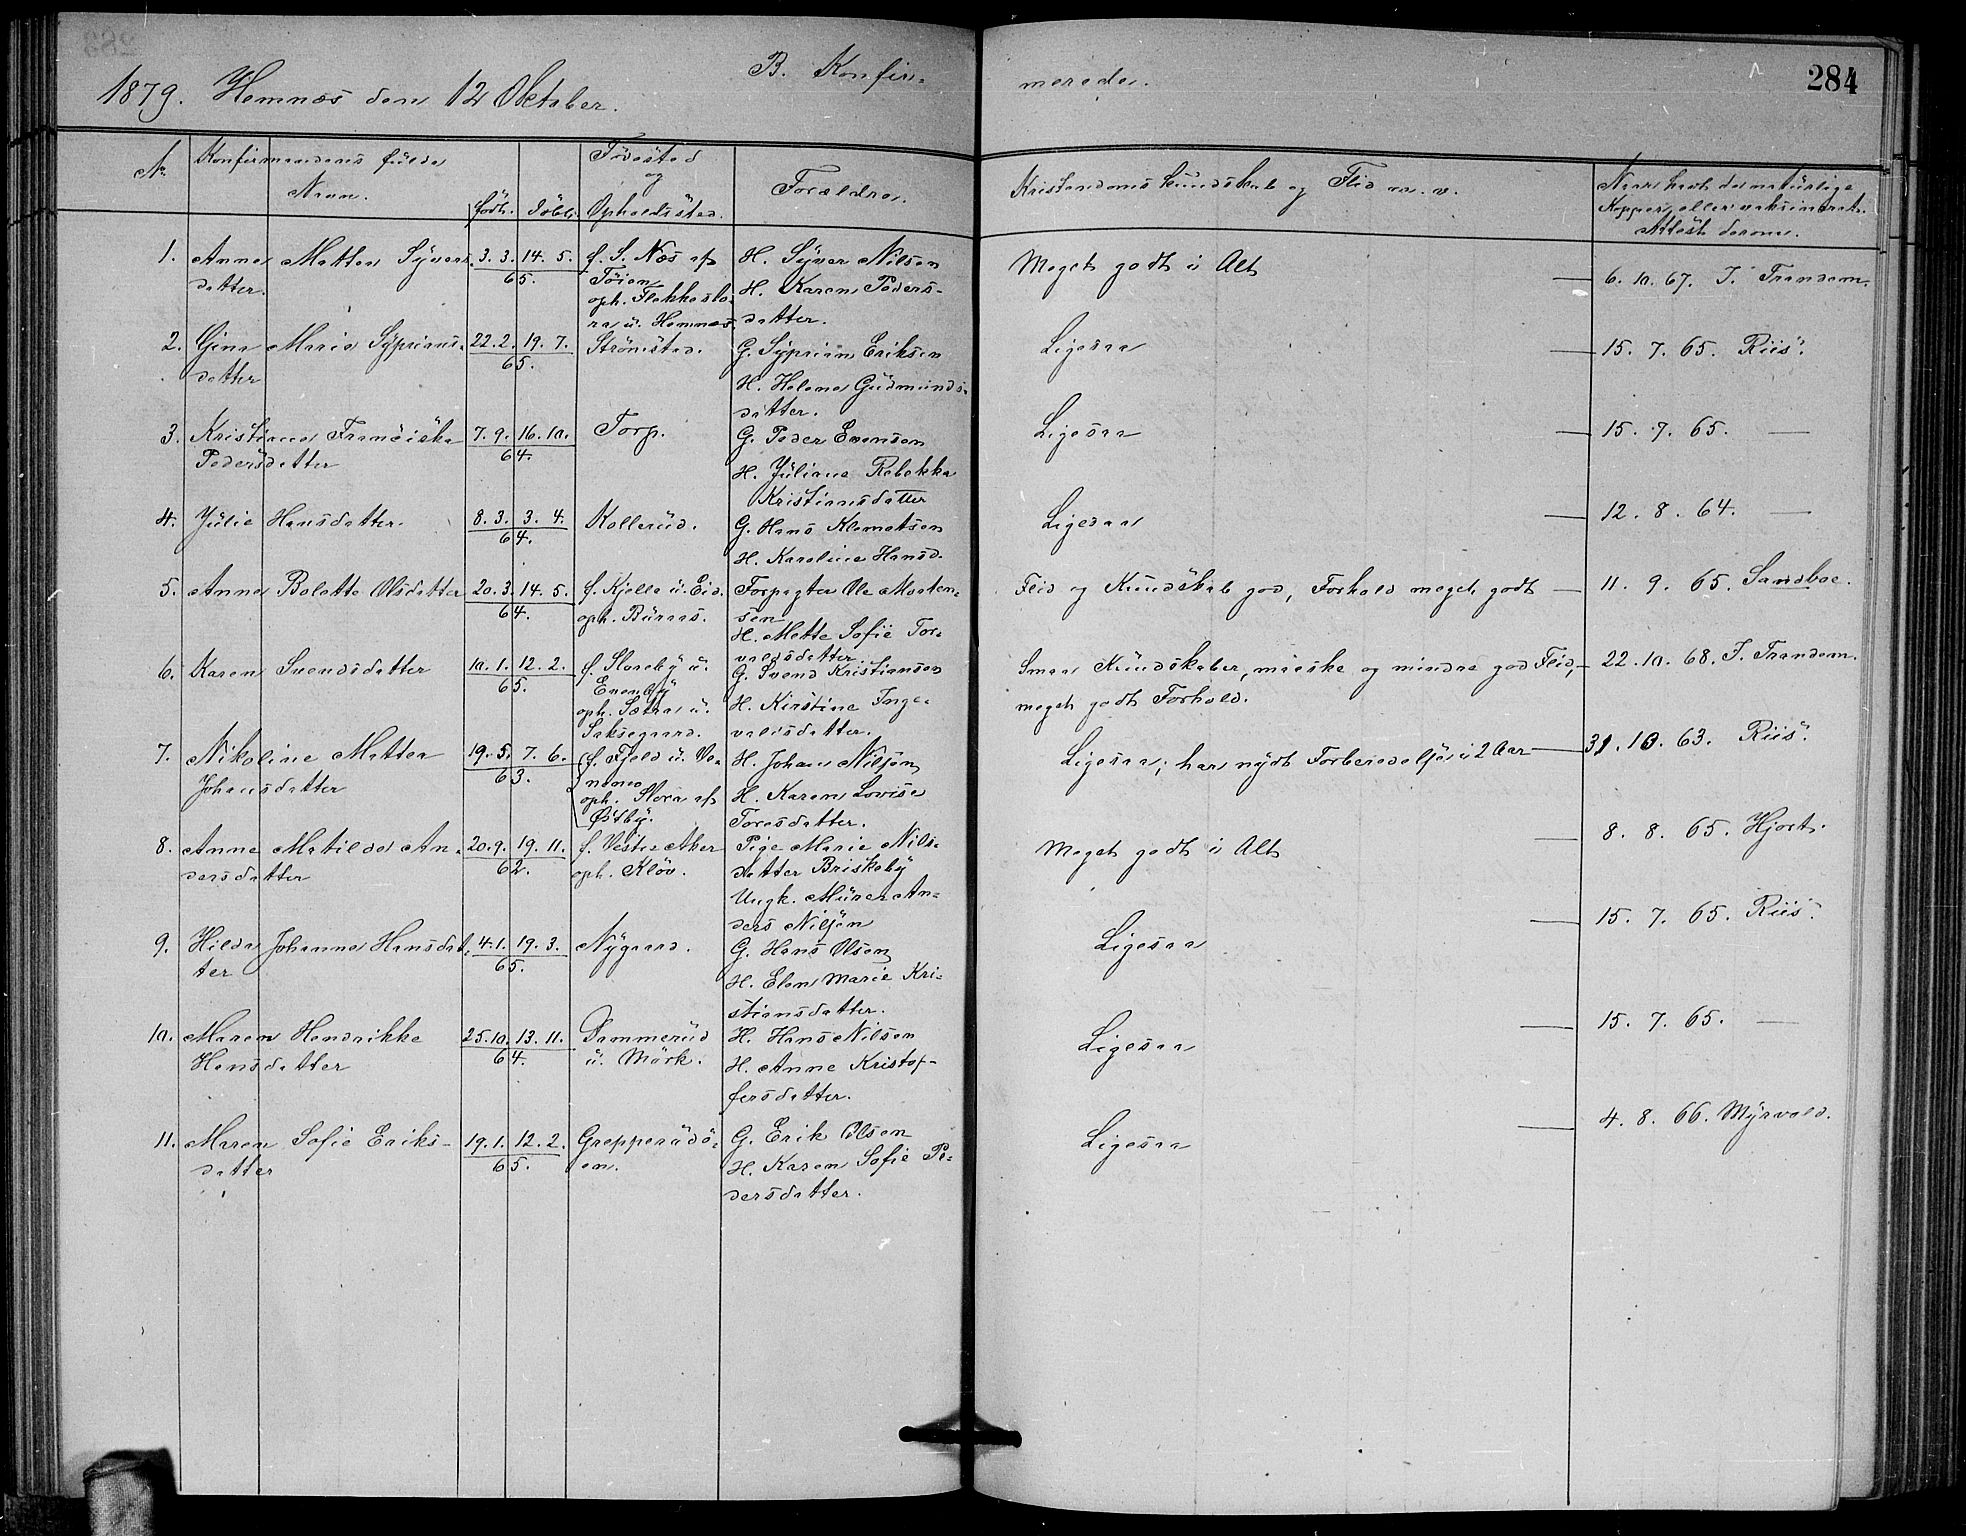 284
B. Konfir-
merede.
1879. Hemnæs den 12 Oktober.
No
Konfirmandens fulde
Navn.
født.
döbt.
Födested
og
Opholdssted.
Forældre.
Kristendoms kundskab og Flid m. v.
Naar havt de naturlige
Kopper eller vaksineret.
Attest derom.
1. Anne Mathea Syvers-
datter.
3. 3. 14. 5.
65.
f. S. Næs af
Töien
oph.
u. Hemnæs
H. Syver Nilsen
H. Karen Peders-
datter.
Meget godt i Alt
6. 10. 67. J. Trandem.
2. Gina Marie Syprians-
datter
22. 2. 19. 7.
65.
Strömstad.
G. Syprian Eriksen
H. Helene Gudmunds-
datter.
Ligesaa
15. 7. 65. Riis.
3. Kristiane Franciska
Pedersdatter
7. 9. 16. 10.
64.
Torp.
G. Peder Evensen
H. Juliane Rebekka
Kristiansdatter
Ligesaa
15. 7. 65. —
4. Julie Hansdatter.
8. 3. 3. 4.
64.
Kollerud.
G. Hans Klemetsen
H. Karoline Hansd.
Ligesaa
12. 8. 64. —
5. Anne Bolette Olsdatter
20. 3. 14. 5.
64.
f. Kjelle u. Eid.
oph. Buraas.
Forpagter Ole Morten-
sen
H. Mette Sofie Tor-
valdsdatter.
Flid og Kundskab god, Forhold meget godt —
11. 9. 65. Sandboe.
6. Karen Svendsdatter
10. 1. 12. 2.
65.
f. Storeby u.
Evenby
oph. Sætra u.
Saksegaard.
G. Svend Kristiansen
H. Kirstine Inge-
valdsdatter.
Smaa Kundskaber, maaske og mindre god Flid,
meget godt Forhold.
22. 10. 68. J. Trandem.
7. Nikoline Mathea
Johansdatter
19. 5. 7. 6.
63.
f. Fjeld u.
oph. Stora af
Østby.
H. Johan Nilsen
H. Karen Lovise
Toresdatter.
Ligesaa; har nydt Forberedelse i 2 Aar
31. 10. 63. Riis.
8. Anne Matilde An-
dersdatter
20. 9. 19. 11.
62.
f. Vestre Aker
oph. Klöv.
Pige Marie Nils-
datter Briskeby
Ungk. Murer An-
ders Nilsen
Meget godt i Alt
8. 8. 65. Hjort.
9. Hilda Johanne Hansdat-
ter
4. 1. 19. 3.
65.
Nygaard.
G. Hans Olsen
H. Elen Marie Kri-
stiansdatter.
Ligesaa
15. 7. 65. Riis.
10. Maren Hendrikke
Hansdatter
25. 10. 13. 11.
64.
Dammerud
u. Mörk.
H. Hans Nilsen
H. Anne Kristof-
fersdatter.
Ligesaa
15. 7. 65. —
11. Maren Sofie Eriks-
datter
19. 1. 12. 2.
65.
Grepperödö-
en.
G. Erik Olsen
H. Karen Sofie Pe-
dersdatter.
Ligesaa
4. 8. 66. Myrvold.